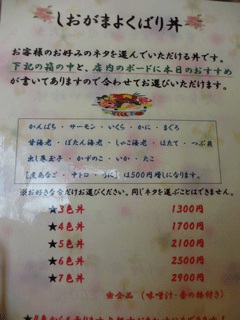 しおがまよくばり丼
お客様のお好みのネタを選んでいただける丼です。
下記の箱の中と、店内のボードに本日のおすすめ
が書いてありますので合わせてお選びいただけます。
かんぱち ・ サーモン ・ いくら ・ かに ・ まぐろ
甘海老 ・ ぼたん海老 ・ しゃこ海老 ・ ほたて ・ つぶ貝
出し巻玉子 ・ かずのこ ・ いか ・ たこ
[煮あなご ・ 中トロ ・ うに]は500円増しになります。
※お好きな色だけお選びください。同じネタを選ぶことはできません。
★3色丼 1300円
★4色丼 1700円
★5色丼 2100円
★6色丼 2500円
★7色丼 2900円
★全品 (味噌汁・香の物付き)